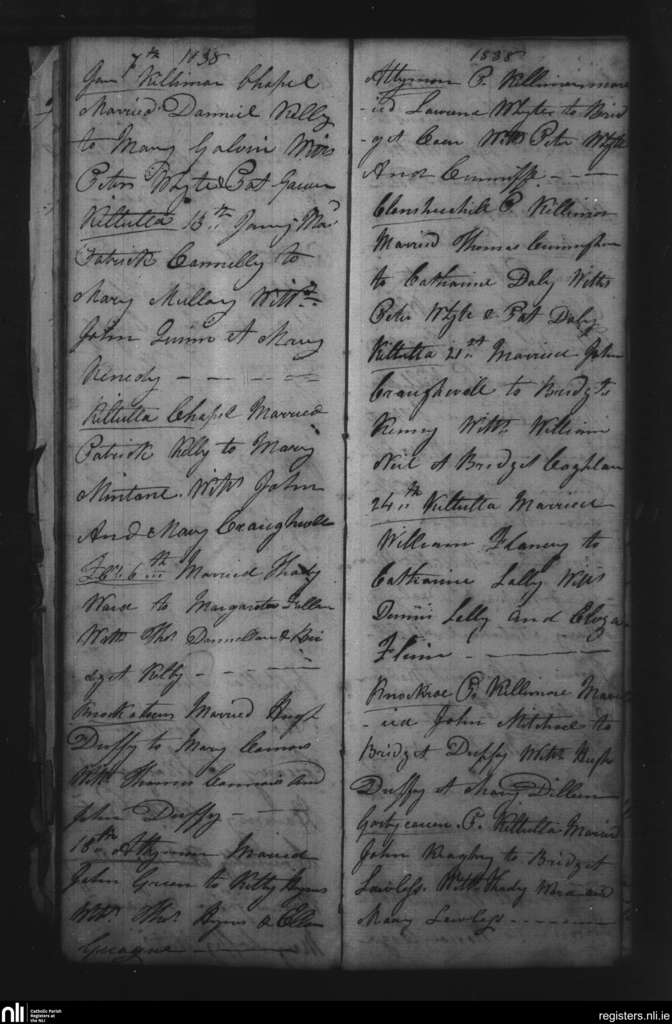 7th 1838
Jany Killimor Chapel
Married Danniel Kelly
to Mary Galvin Witts
Peter Whyte & Pat
Kiltulla 13th Jany Mar
Patrick Connelly to
Mary Mullary Witts
John Quinn & Mary
Kenedy
Kiltulla Chapel Married
Patrick Kelly to Mary
Mintane. Witts John
And Mary Craughwell
Feb. 6th Married Thady
Ward to Margaret
With Thos Donnellan & Bri
dget Kelly
Married Hugh
Duffy to Mary Connors
Witts Thomas Connors and
John Duffy
18th Attymon Married
John Green to Kitty Byrns
Witts Thos Byrns & Ellen
1838
Attymon P. Killimer marr
-ied Lawrence Whyte to Brid
-get Witts Peter Whyte
And
P. Killimor
Married Thomas Cuningham
to Catharine Daly Witts
Peter Whyte & Pat Daly
Kiltulla 21st Married John
Craughwell to Bridgt
Kenny Witts William
Neil & Bridget Coghlan
24th Kiltulla Married
William Flanery to
Catharine Lally Witts
Dennis Lally and Eliza
Flinn
Knockroe P. Killimore Marr
-ied John Mitchel to
Bridget Duffy Witts Hugh
Duffy & Mary Dillon
P. Kiltulla Married
John to Bridget
Lawless. Witts Thady Ward and
Mary Lawless
nli
Catholic Parish
Registers at
the NLI
registers.nli.ie